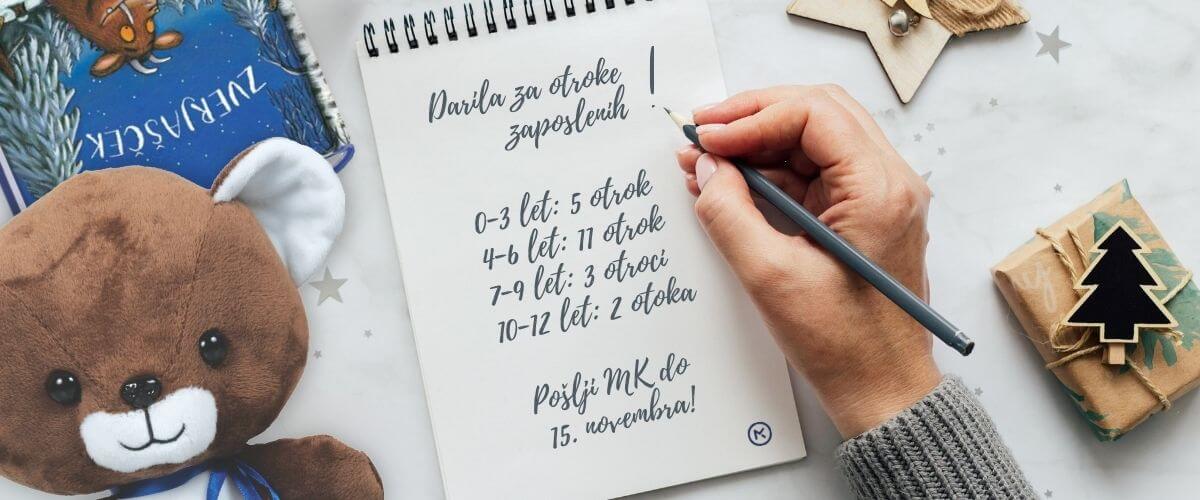 ZVERJAŠČEK
Darila za otroke
zaposlenih !
0-3 let: 5 otrok
4-6 let: 11 otrok
7-9 let: 3 otroci
10-12 let: 2 otoka
Pošlji MK do
15. novembra!